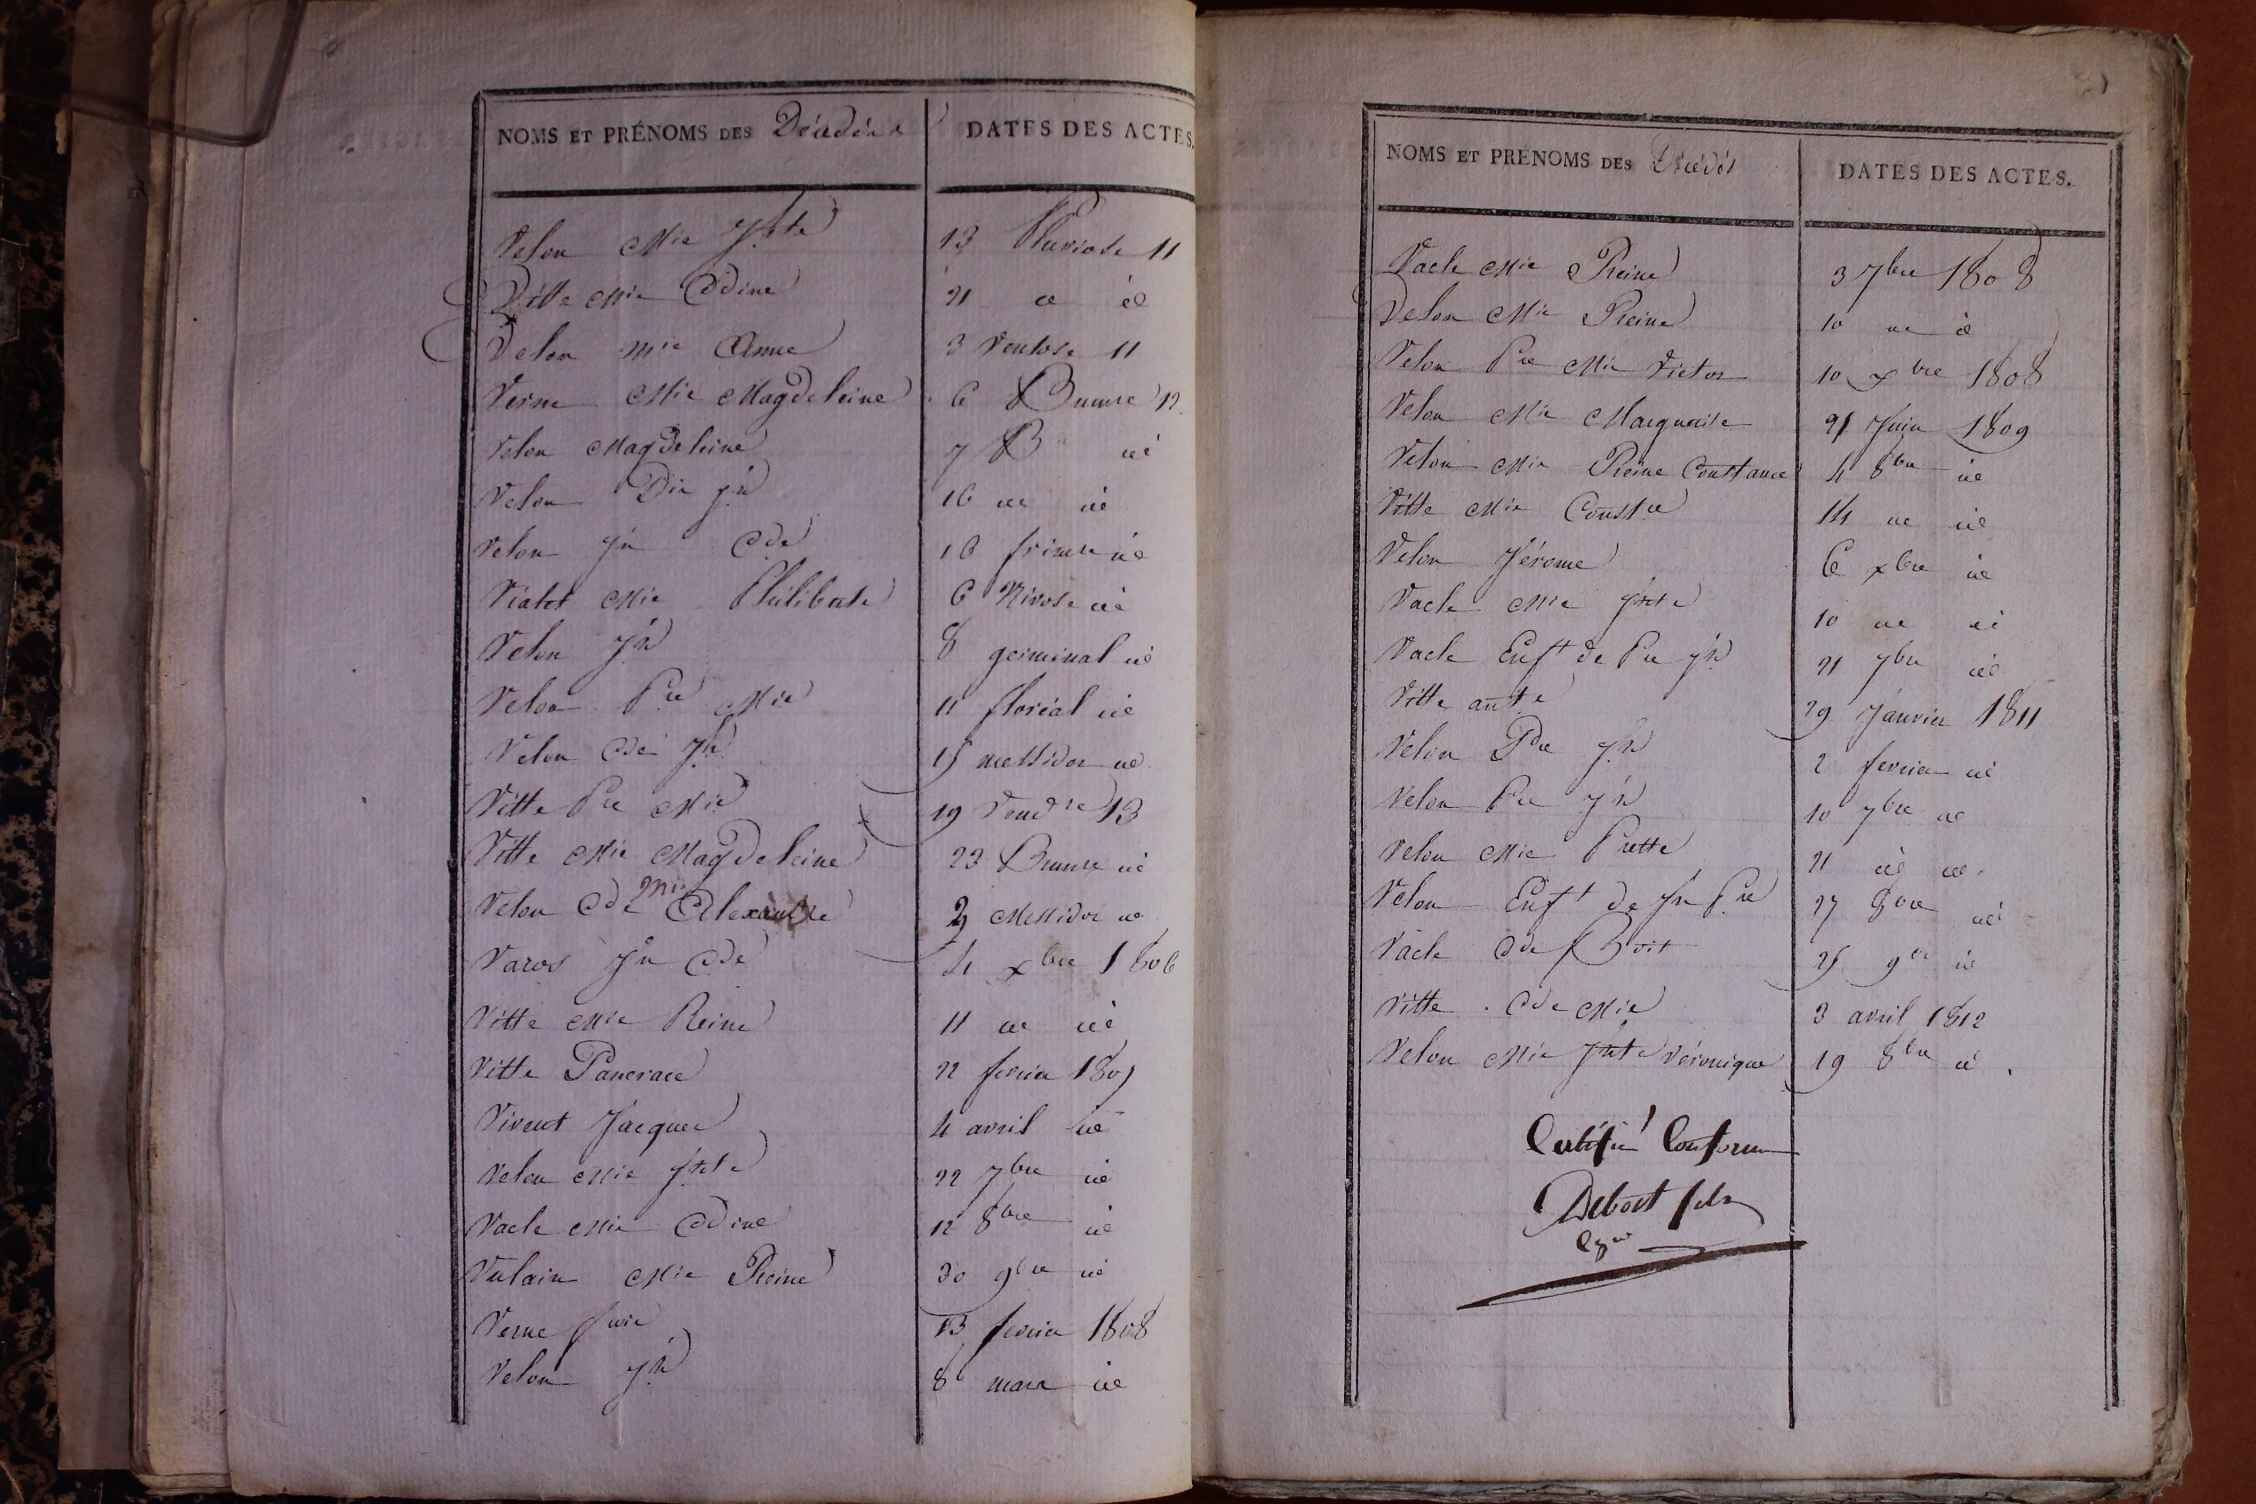 NOMS ET PRÉNOMS DES Décédés
DATES DES ACTES.
Velon Mie Jhte 13 Pluviose 11
Vitte Mie Cdine 21 id id
Velon Mie Anne 3 Ventose 11
Verne Mie Magdeleine 6 Brumre 12
Velon Magdeleine 7 B id
Velon Jh 16 id id
Velon Jn Cde 16 frimre id
Vialet Mie Philiberte 6 Nivose id
Velon Jh 8 germinal id
Velon Pre Mie 11 floréal id
Velon Cde Jh 15 messidor id
Vitte Pre Mie 19 Vendre 13
Vitte Mie Magdeleine 23 Brumre id
Velon Cde Mie Alexandre 2 Messidor id
Varos Jn Cde 4 xbre 1806
Vitte Mie Reine 11 id id
Vitte Pancrace 22 fevrier 1807
Jacques 4 avril id
Velon Mie Jhte 22 7bre id
Vacle Mie Cdine 12 8bre id
Vulain Mie Reine 30 9bre id
Verne 13 fevrier 1808
Velon Jh 8 mars id
NOMS ET PRÉNOMS DES Décédés
DATES DES ACTES.
Vacle Mie Reine 3 7bre 1808
Velon Mie Reine 10 id id
Velon Pre Mie Victor 10 xbre 1808
Velon Mie Marguerite 21 Juin 1809
Velon Mie Reine Constance 4 8bre id
Vitte Mie Constce 14 id id
Velon Jérome 6 xbre id
Vacle Mie Jhte 10 id id
Vacle Enft de Pre Jh 21 7bre id
Vitte antte 29 Janvier 1811
Velon Jh 2 fevrier id
Velon Pre Jh 10 7bre id
Velon Mie Prette 21 id id.
Velon Enft de Jn Pre 27 8bre id
Vacle Cde Benoit 25 9bre id
Vitte Cde Mie 3 avril 1812
Velon Mie Jhte Véronique 19 8bre id.
Certifié Conforme
Debost fils